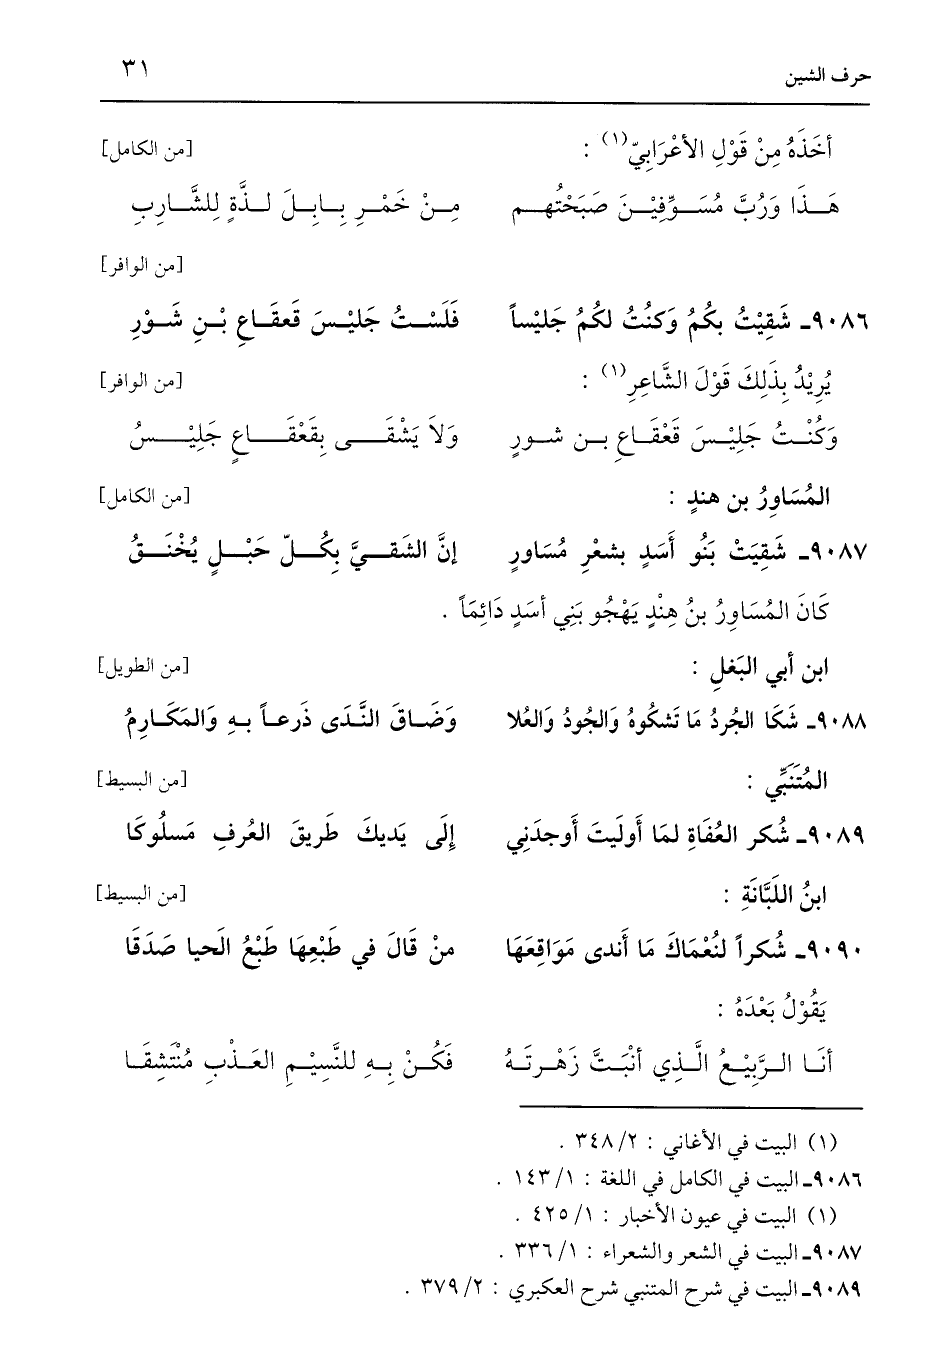 حرف الشين ٣١
أخَذَهُ مِنْ قَوْلِ الأعْرَابِيّ(١) : [من الكامل]
هَـذَا وَرُبَّ مُسَـوِّفِيْـنَ صَبَحْتُهـم مِـنْ خَمْـرِ بِـابِـلَ لـذَّةٍ لِلشَّـارِبِ
[من الوافر]
٩٠٨٦ـ شَقِيْتُ بكُمُ وَكنْتُ لكُمُ جَليْساً فَلَسْـتُ جَليْـسَ قَعقَـاعِ بْـنِ شَـوْرِ
يُرِيْدُ بِذَلِكَ قَوْلَ الشَّاعِرِ(١) : [من الوافر]
وَكُنْـتُ جَلِيْـسَ قَعْقَـاعِ بـن شـورٍ وَلاَ يَشْقَـى بِقَعْقَـاعٍ جَلِيْـسُ
المُسَاوِرُ بن هندٍ : [من الكامل]
٩٠٨٧ـ شَقِيَتْ بَنُو أَسَدٍ بشعْرِ مُسَاورٍ إنَّ الشَقـيَّ بِكُـلّ حَبْـلٍ يُخْنَـقُ
كَانَ المُسَاوِرُ بنُ هِنْدٍ يَهْجُو بَنِي أسَدٍ دَائِمَاً .
ابن أبي البَغلِ : [من الطويل]
٩٠٨٨ـ شَكَا الجُردُ مَا تَشكُوهُ وَالجُودُ وَالعُلا وَضَـاقَ النَّـدَى ذَرعـاً بـهِ وَالمَكَـارِمُ
المُتَنَبِّي : [من البسيط]
٩٠٨٩ـ شُكر العُفَاةِ لمَا أَولَيتَ أَوجدَني إلَى يَديكَ طَريقَ العُرفِ مَسلُوكَا
ابنُ اللَبَّانَةِ : [من البسيط]
٩٠٩٠ـ شُكراً لنُعْمَاكَ مَا أَندى مَوَاقِعَهَا منْ قَالَ في طَبْعِهَا طَبْعُ الَحيا صَدَقَا
يَقُوْلُ بَعْدَهُ :
أنَـا الـرَّبِيْـعُ الَّـذِي أنْبَـتَّ زَهْـرتَـهُ فَكُـنْ بِـهِ للنَّسِيْـمِ العَـذْبِ مُنْتَشِقَـا
(١) البيت في الأغاني : ٢/ ٣٤٨ .
٩٠٨٦ـ البيت في الكامل في اللغة : ١/ ١٤٣ .
(١) البيت في عيون الأخبار : ١/ ٤٢٥ .
٩٠٨٧ـ البيت في الشعر والشعراء : ١/ ٣٣٦ .
٩٠٨٩ـ البيت في شرح المتنبي شرح العكبري : ٢/ ٣٧٩ .